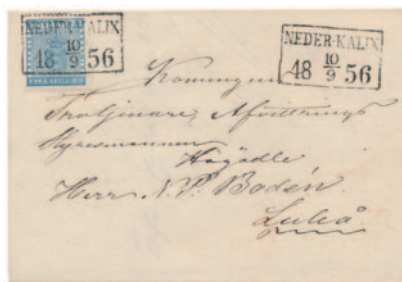 NEDER-KALIX
18 10/9 56
NEDER-KALIX
18 10/9 56
Konungens
Trotjenare, Afvittrings
Styresmannen
Högädle
Herr N. P. Bodén.
Luleå